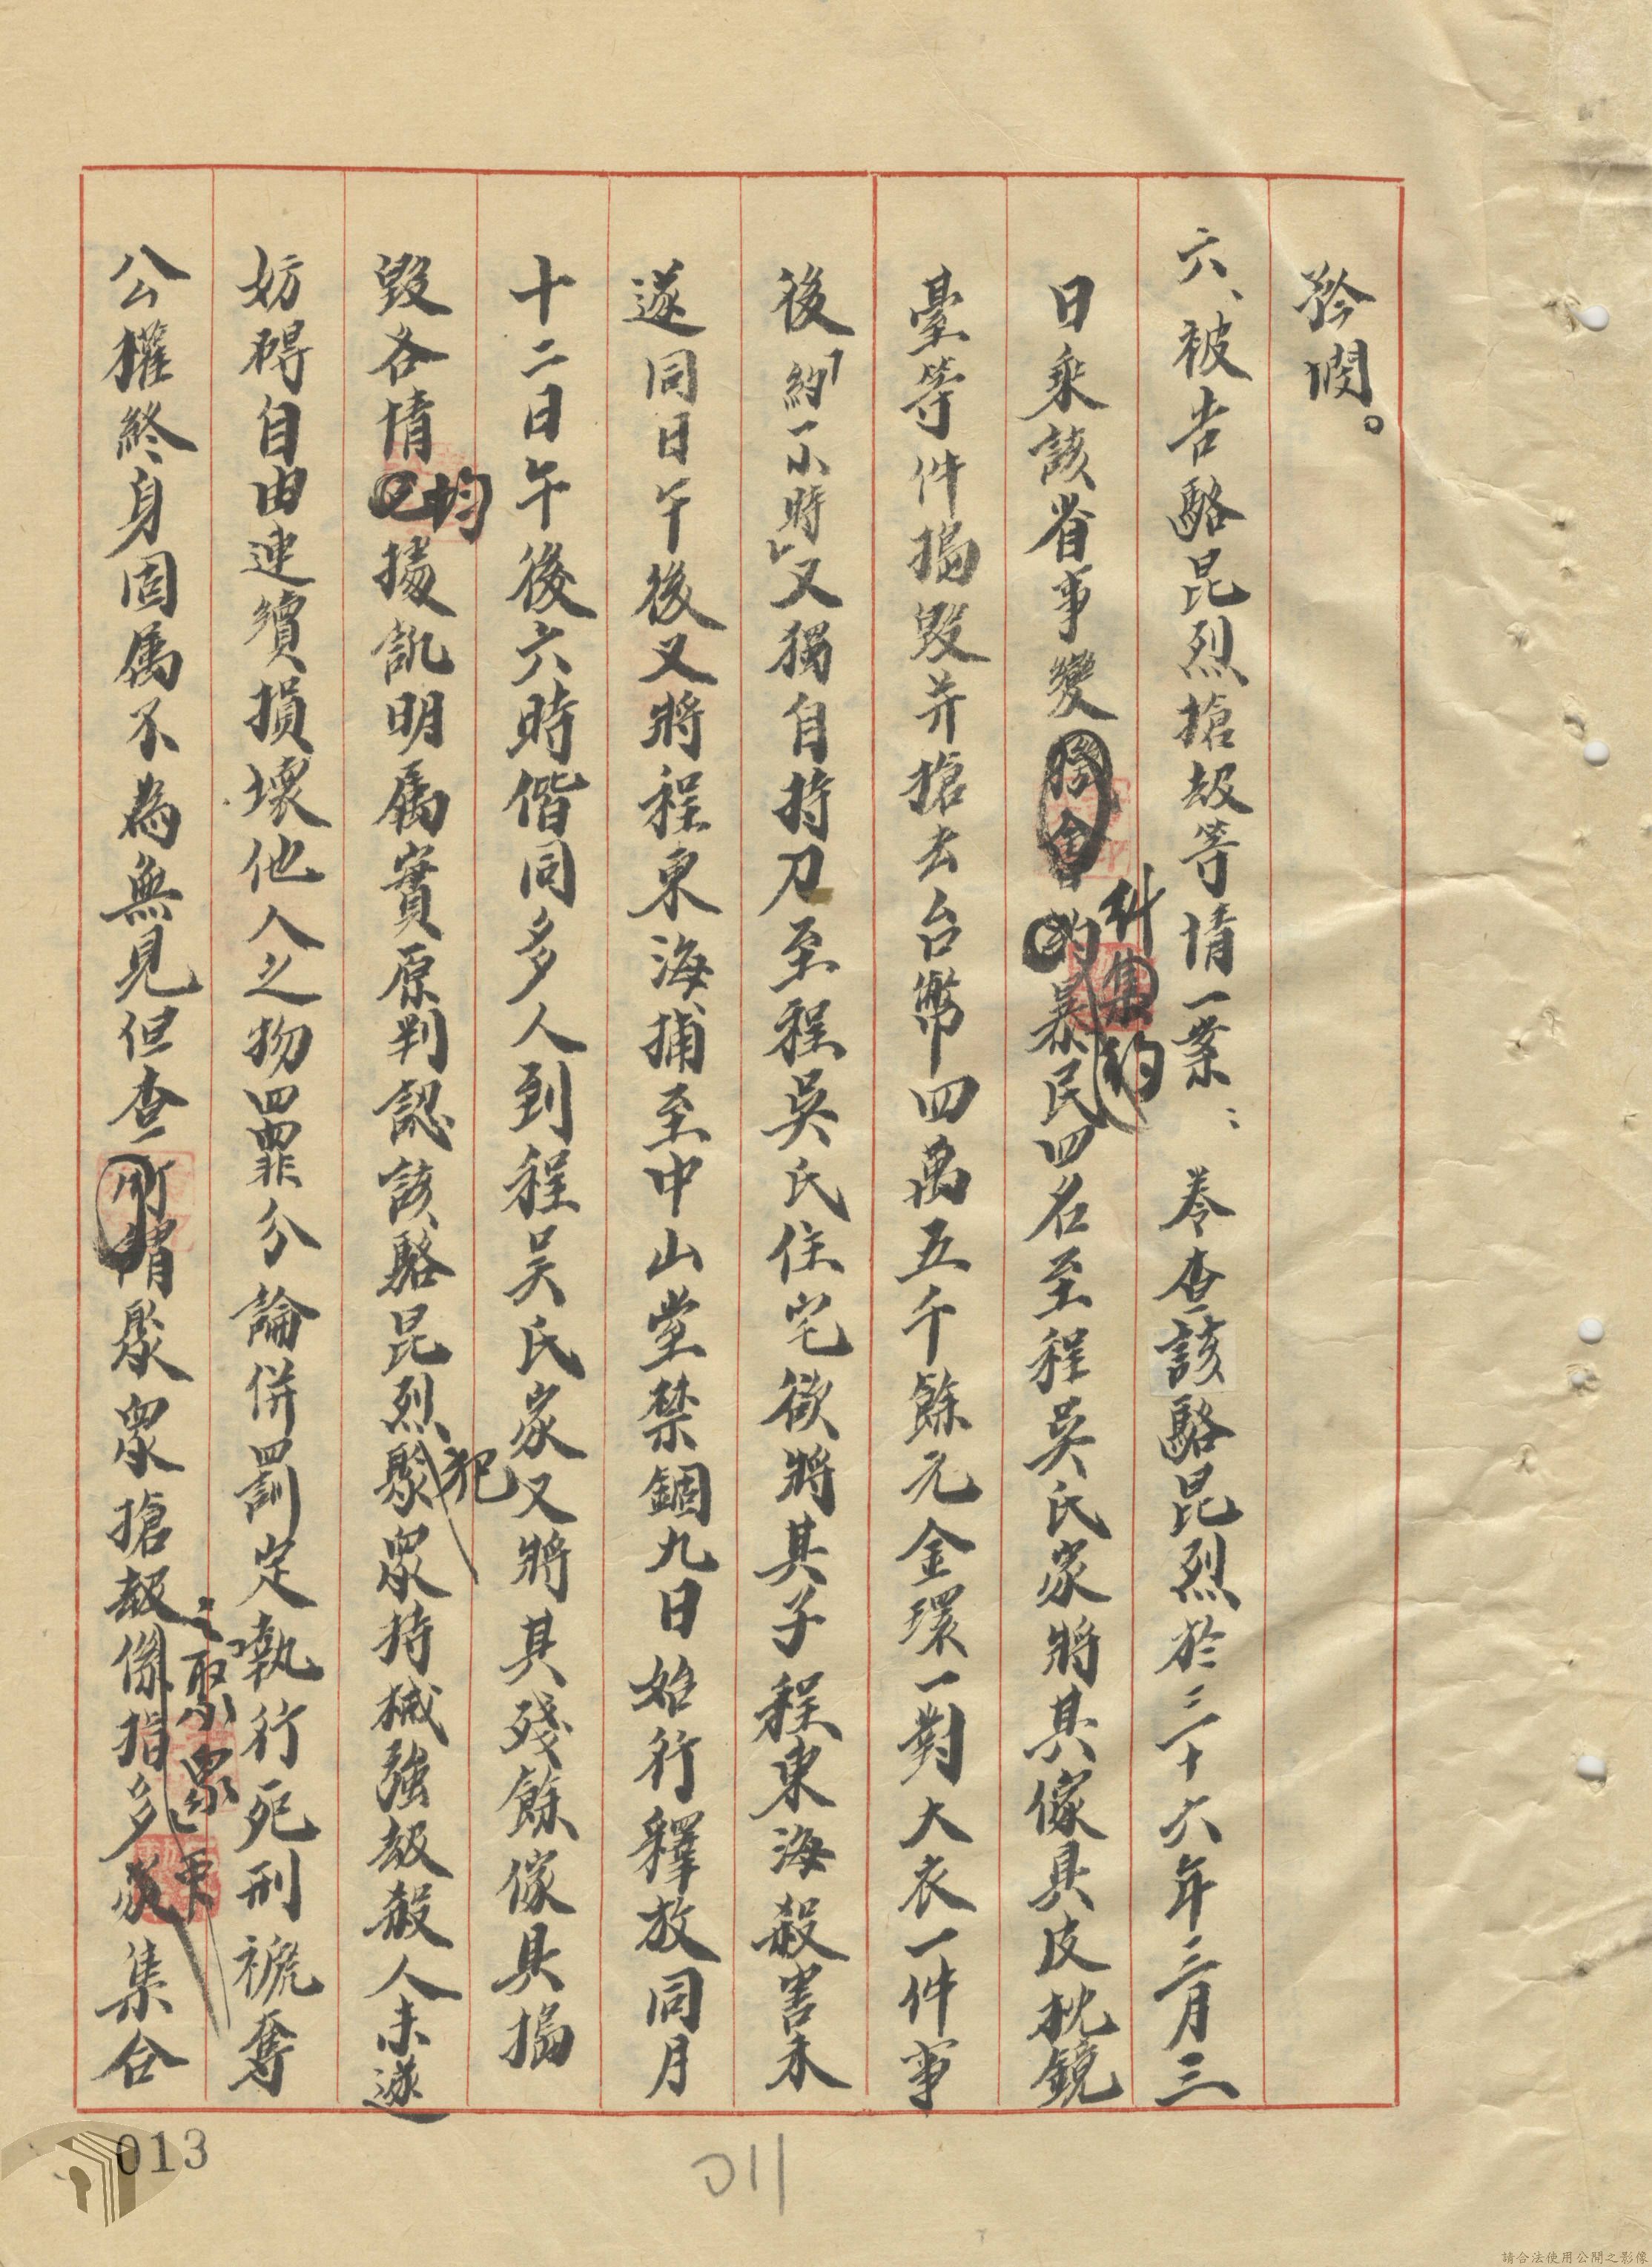 矜憫。
六、被告駱昆烈搶刼等情一案：卷查該駱昆烈於三十六年三月三
日乘該省事變機會糾集約的暴民四名至程吳氏家將其傢具皮枕鏡
臺等件搗毀并搶去台幣四萬五千餘元金環一對大衣一件事
後「約一小時」又獨自持刀至程吳氏住宅欲將其子程東海殺害未
遂同日午後又將程東海捕至中山堂禁錮九日始行釋放同月
十二日午後六時偕同多人到程吳氏家又將其殘餘傢具搗
毀各情均據訊明屬實原判認該駱昆烈犯聚眾持械強刼殺人未遂
妨碍自由連續損壞他人之物四罪分論併罰定執行死刑褫奪
公權終身固屬不為無見但查所謂聚眾搶刼之聚眾係指多眾集合
013
011
請合法使用公開之影像